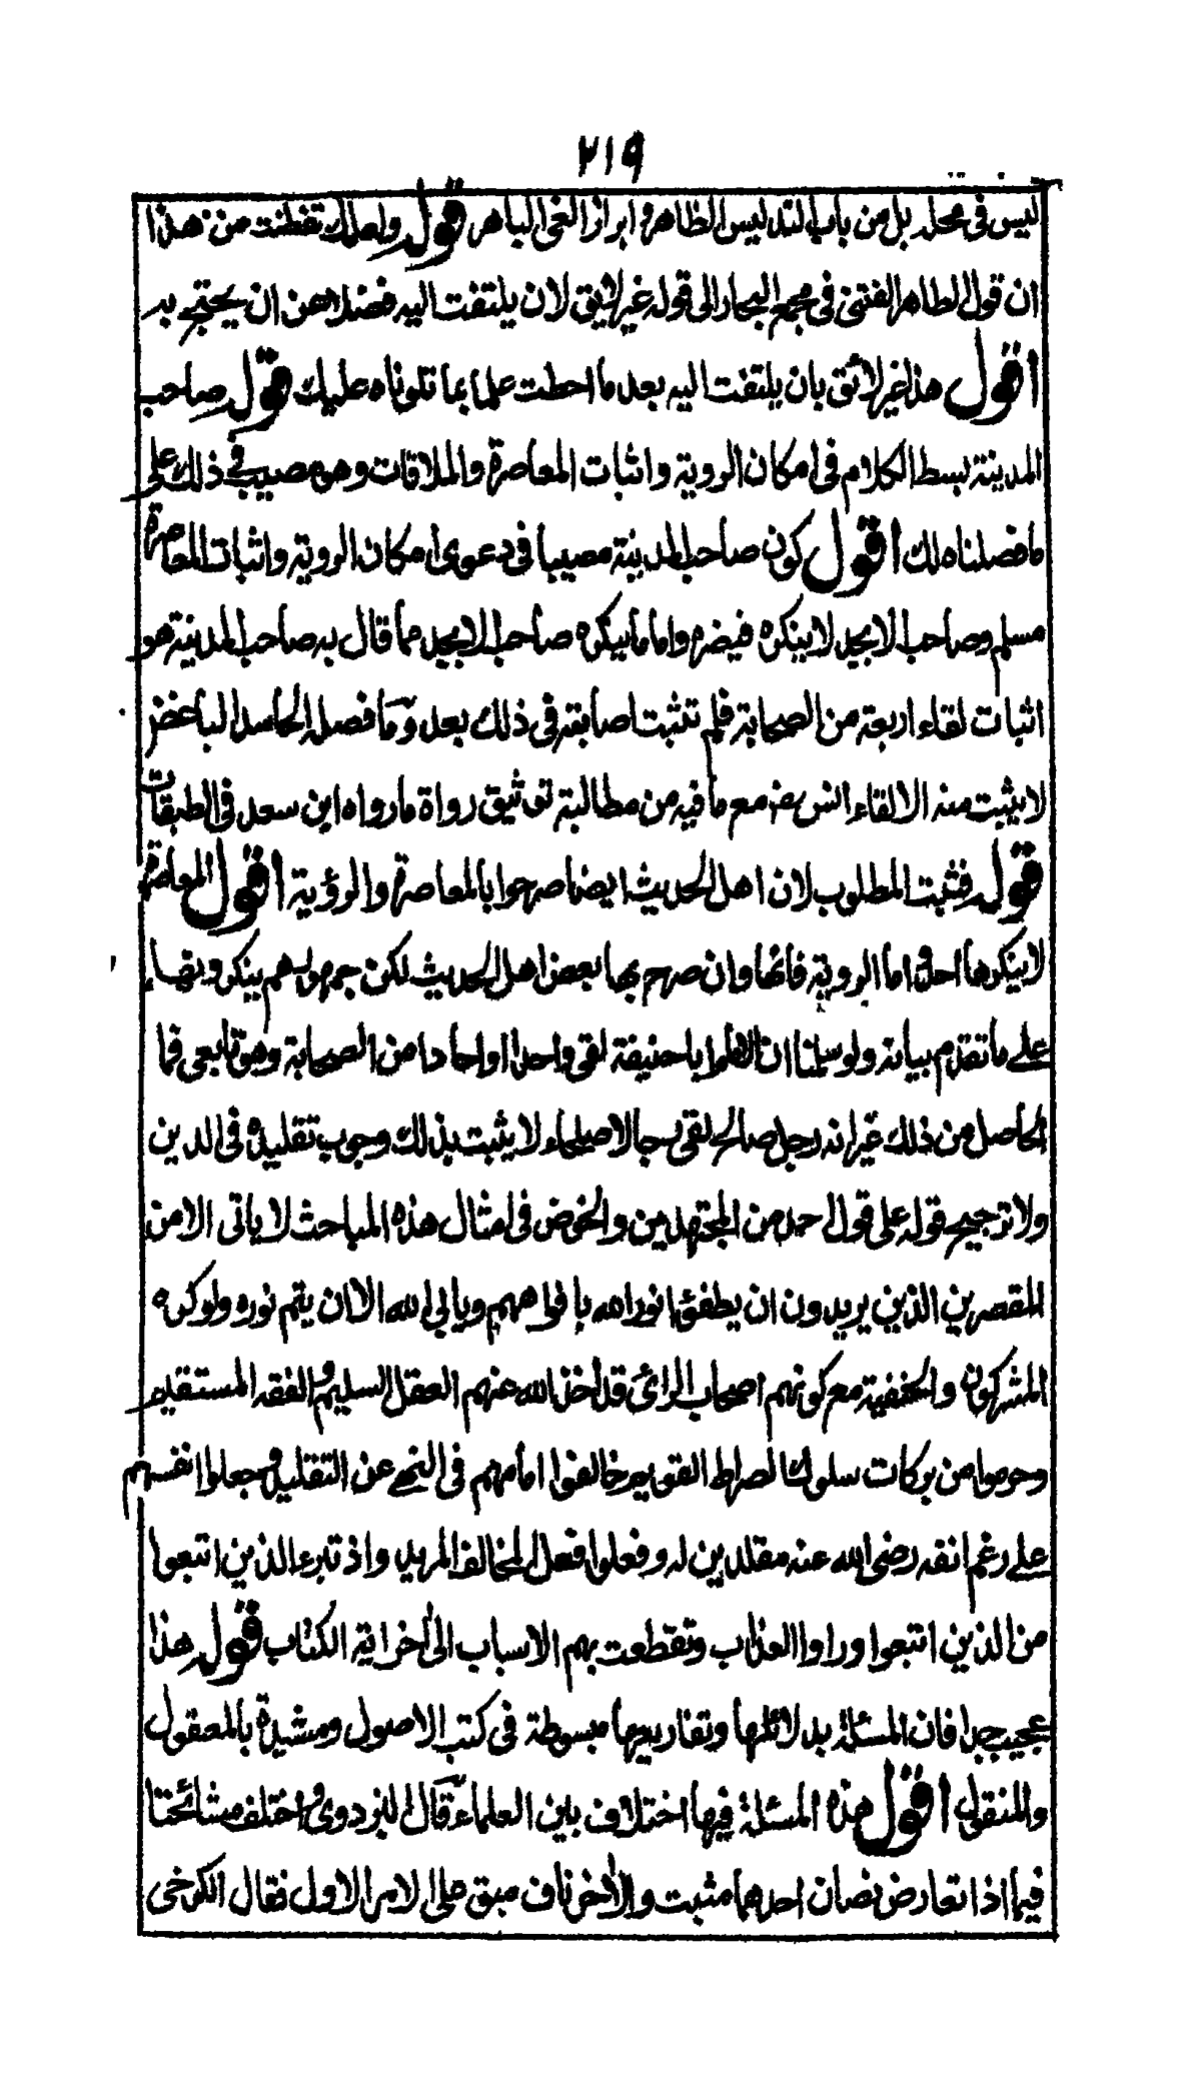 ٢١٩
ليس فى محله بل من باب التدليس الظاهر و ابراز الغى الباهر قوله ولعلك تفطنت من هذا
ان قول الطاهر الفتنى فى مجمع البحار الى قوله غير لائق لان يلتفت اليه فضلا عن ان يحتج به
اقول هذا غير لائق بان يلتفت اليه بعد ما احطت علما بما تلوناه عليك قوله صاحب
المدينة بسط الكلام فى امكان الروية واثبات المعاصرة والملاقات وهو مصيب فى ذلك على
ما فصلناه لك اقول كون صاحب المدينة مصيبا فى دعوى امكان الروية واثبات المعاصرة
مسلم وصاحب الابجد لا ينكره فيضره واما ما ينكره صاحب الابجد مما قال به صاحب المدينة هو
اثبات لقاء اربعة من الصحابة فلم تثبت اصابته فى ذلك بعد وما فصله الحاسد الباغض
لا يثبت منه الا لقاء انس رض مع ما فيه من مطالبة توثيق رواة ما رواه ابن سعد فى الطبقات
قوله فثبت المطلوب لان اهل الحديث ايضا صرحوا بالمعاصرة والرؤية اقول المعاصرة
لا ينكرها احد و اما الروية فانها وان صرح بها بعض اهل الحديث لكن جمهورهم ينكرونها
على ما تقدم بيانه ولو سلمنا ان الامام ابا حنيفة لقى واحدا او احادا من الصحابة وهو تابعى فما
الحاصل من ذلك غير انه رجل صالح لقى رجالا صلحاء لا يثبت بذلك وجوب تقليده فى الدين
ولا ترجيح قوله على قول احد من المجتهدين والخوض فى امثال هذه المباحث لا ياتى الا من
المقصرين الذين يريدون ان يطفؤا نور الله بافواههم ويابى الله الا ان يتم نوره ولو كره
المشركون والحنفية مع كونهم اصحاب الرائ قد اخذ الله عنهم العقل السليم و الفقه المستقيم
وحرموا من بركات سلوك الصراط القويم خالفوا امامهم فى النهى عن التقليد و جعلوا انفسهم
على رغم انفه رضى الله عنه مقلدين له وفعلوا فعل المخالف المريد واذ تبرء الذين اتبعوا
من الذين اتبعوا وراوا العذاب وتقطعت بهم الاسباب الى اخر اية الكتاب قوله هذا
عجيب جدا فان المسئلة بدلائلها وتفاريعها مبسوطة فى كتب الاصول ومشيدة بالمعقول
والمنقول اقول هذه المسئلة فيها اختلاف بين العلماء قال البزدوى و اختلف مشائخنا
فيما اذا تعارض نصان احدهما مثبت والاخر ناف مبق على الامر الاول فقال الكرخى